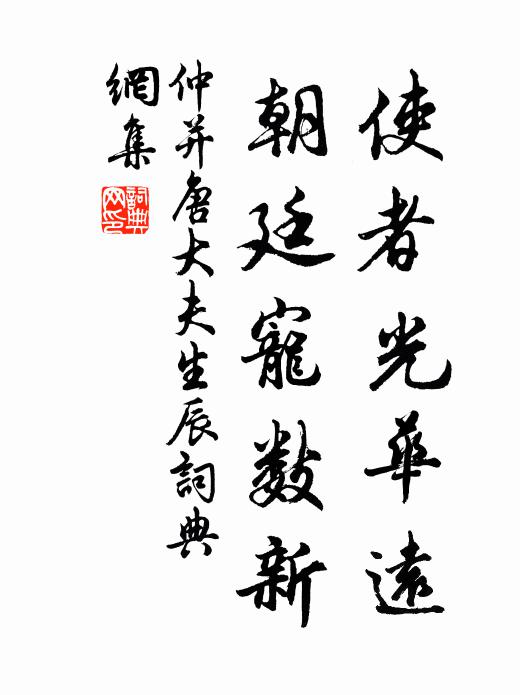 使者光華遠
朝廷寵數新
仲并唐大夫生辰詞典
網集
詞典
網印